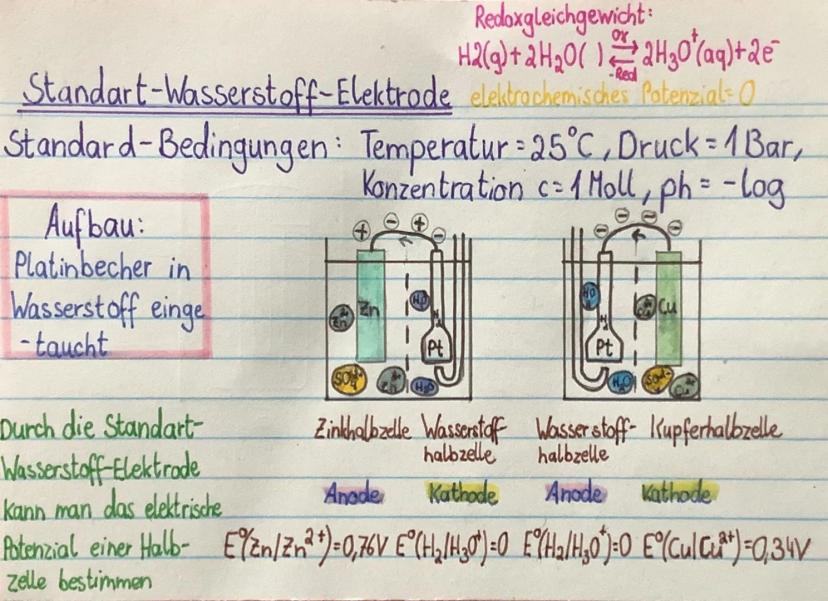 Redoxgleichgewicht:
H2(g)+2H₂O( ) ⇌ 2H₃O⁺(aq)+2e⁻
Ox
-Red
Standart-Wasserstoff-Elektrode
elektrochemisches Potenzial=0
Standard-Bedingungen: Temperatur=25°C, Druck=1Bar,
Konzentration c=1Moll, ph=-log
Aufbau:
Platinbecher in
Wasserstoff einge
-taucht
+ - + -
Zn
Zn²⁺
H₂O
H₂
Pt
SO₄²⁻
Zn²⁺
H₂O
- - - -
H₂O
H₂
Pt
Cu²⁺
Cu
H₂O
SO₄²⁻
Cu²⁺
Durch die Standart-
Wasserstoff-Elektrode
kann man das elektrische
Potenzial einer Halb-
zelle bestimmen
Zinkhalbzelle Wasserstoff
halbzelle
Wasserstoff- Kupferhalbzelle
halbzelle
Anode Kathode Anode Kathode
E°(Zn/Zn²⁺)=0,76V E°(H₂/H₃O⁺)=0 E°(H₂/H₃O⁺)=0 E°(Cu/Cu²⁺)=0,34V